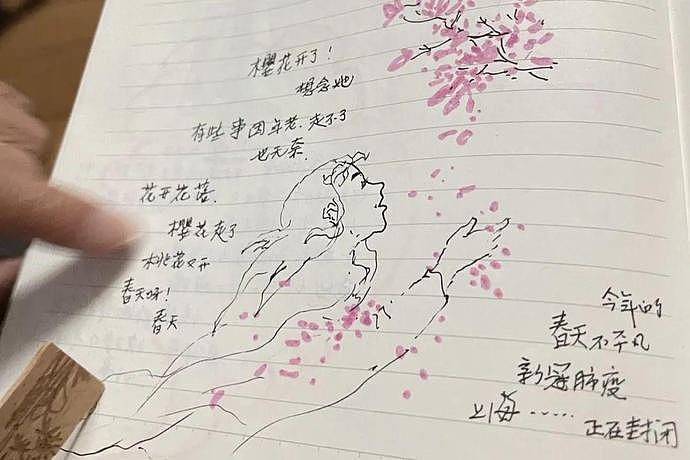 樱花开了!
想念她
有些事因年老.走不了
也无奈.
花开花落.
樱花走了
桃花又开
春天呀!
春天
今年的
春天不平凡
新冠肺疫
上海……
正在封闭